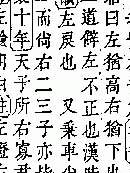 曰左猶高右猶下
道僻左不正也漢
左戾也 又乘車
而尚右二三子亦皆
襄十年天子所右寡君